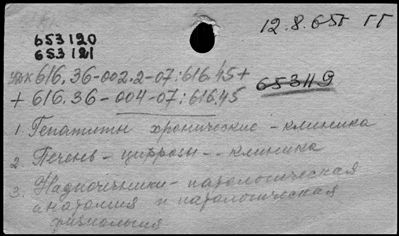 12.8.65г ГГ
653120
653121
УДК 616.36-002.2-07:616.45+
+ 616.36-004-07:616.45
653119
1. Гепатиты хронические - клиника
2. Печень - циррозы - клиника
3. Надпочечники - патологическая
анатомия и патологическая
физиология